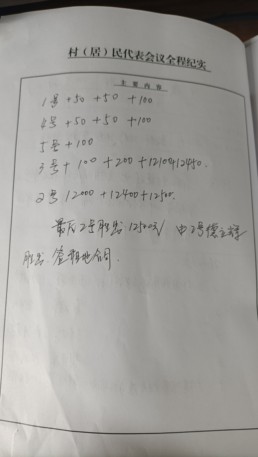 村（居）民代表会议全程纪实
主 要 内 容
1号 +50 +50 +100
4号 +50 +50 +100
5号 +100
3号 + 100 +200 +12100+12450.
2号 12000 +12400+12500.
最后2号胜出 12500元/ 由2号
胜出.签 地合同.